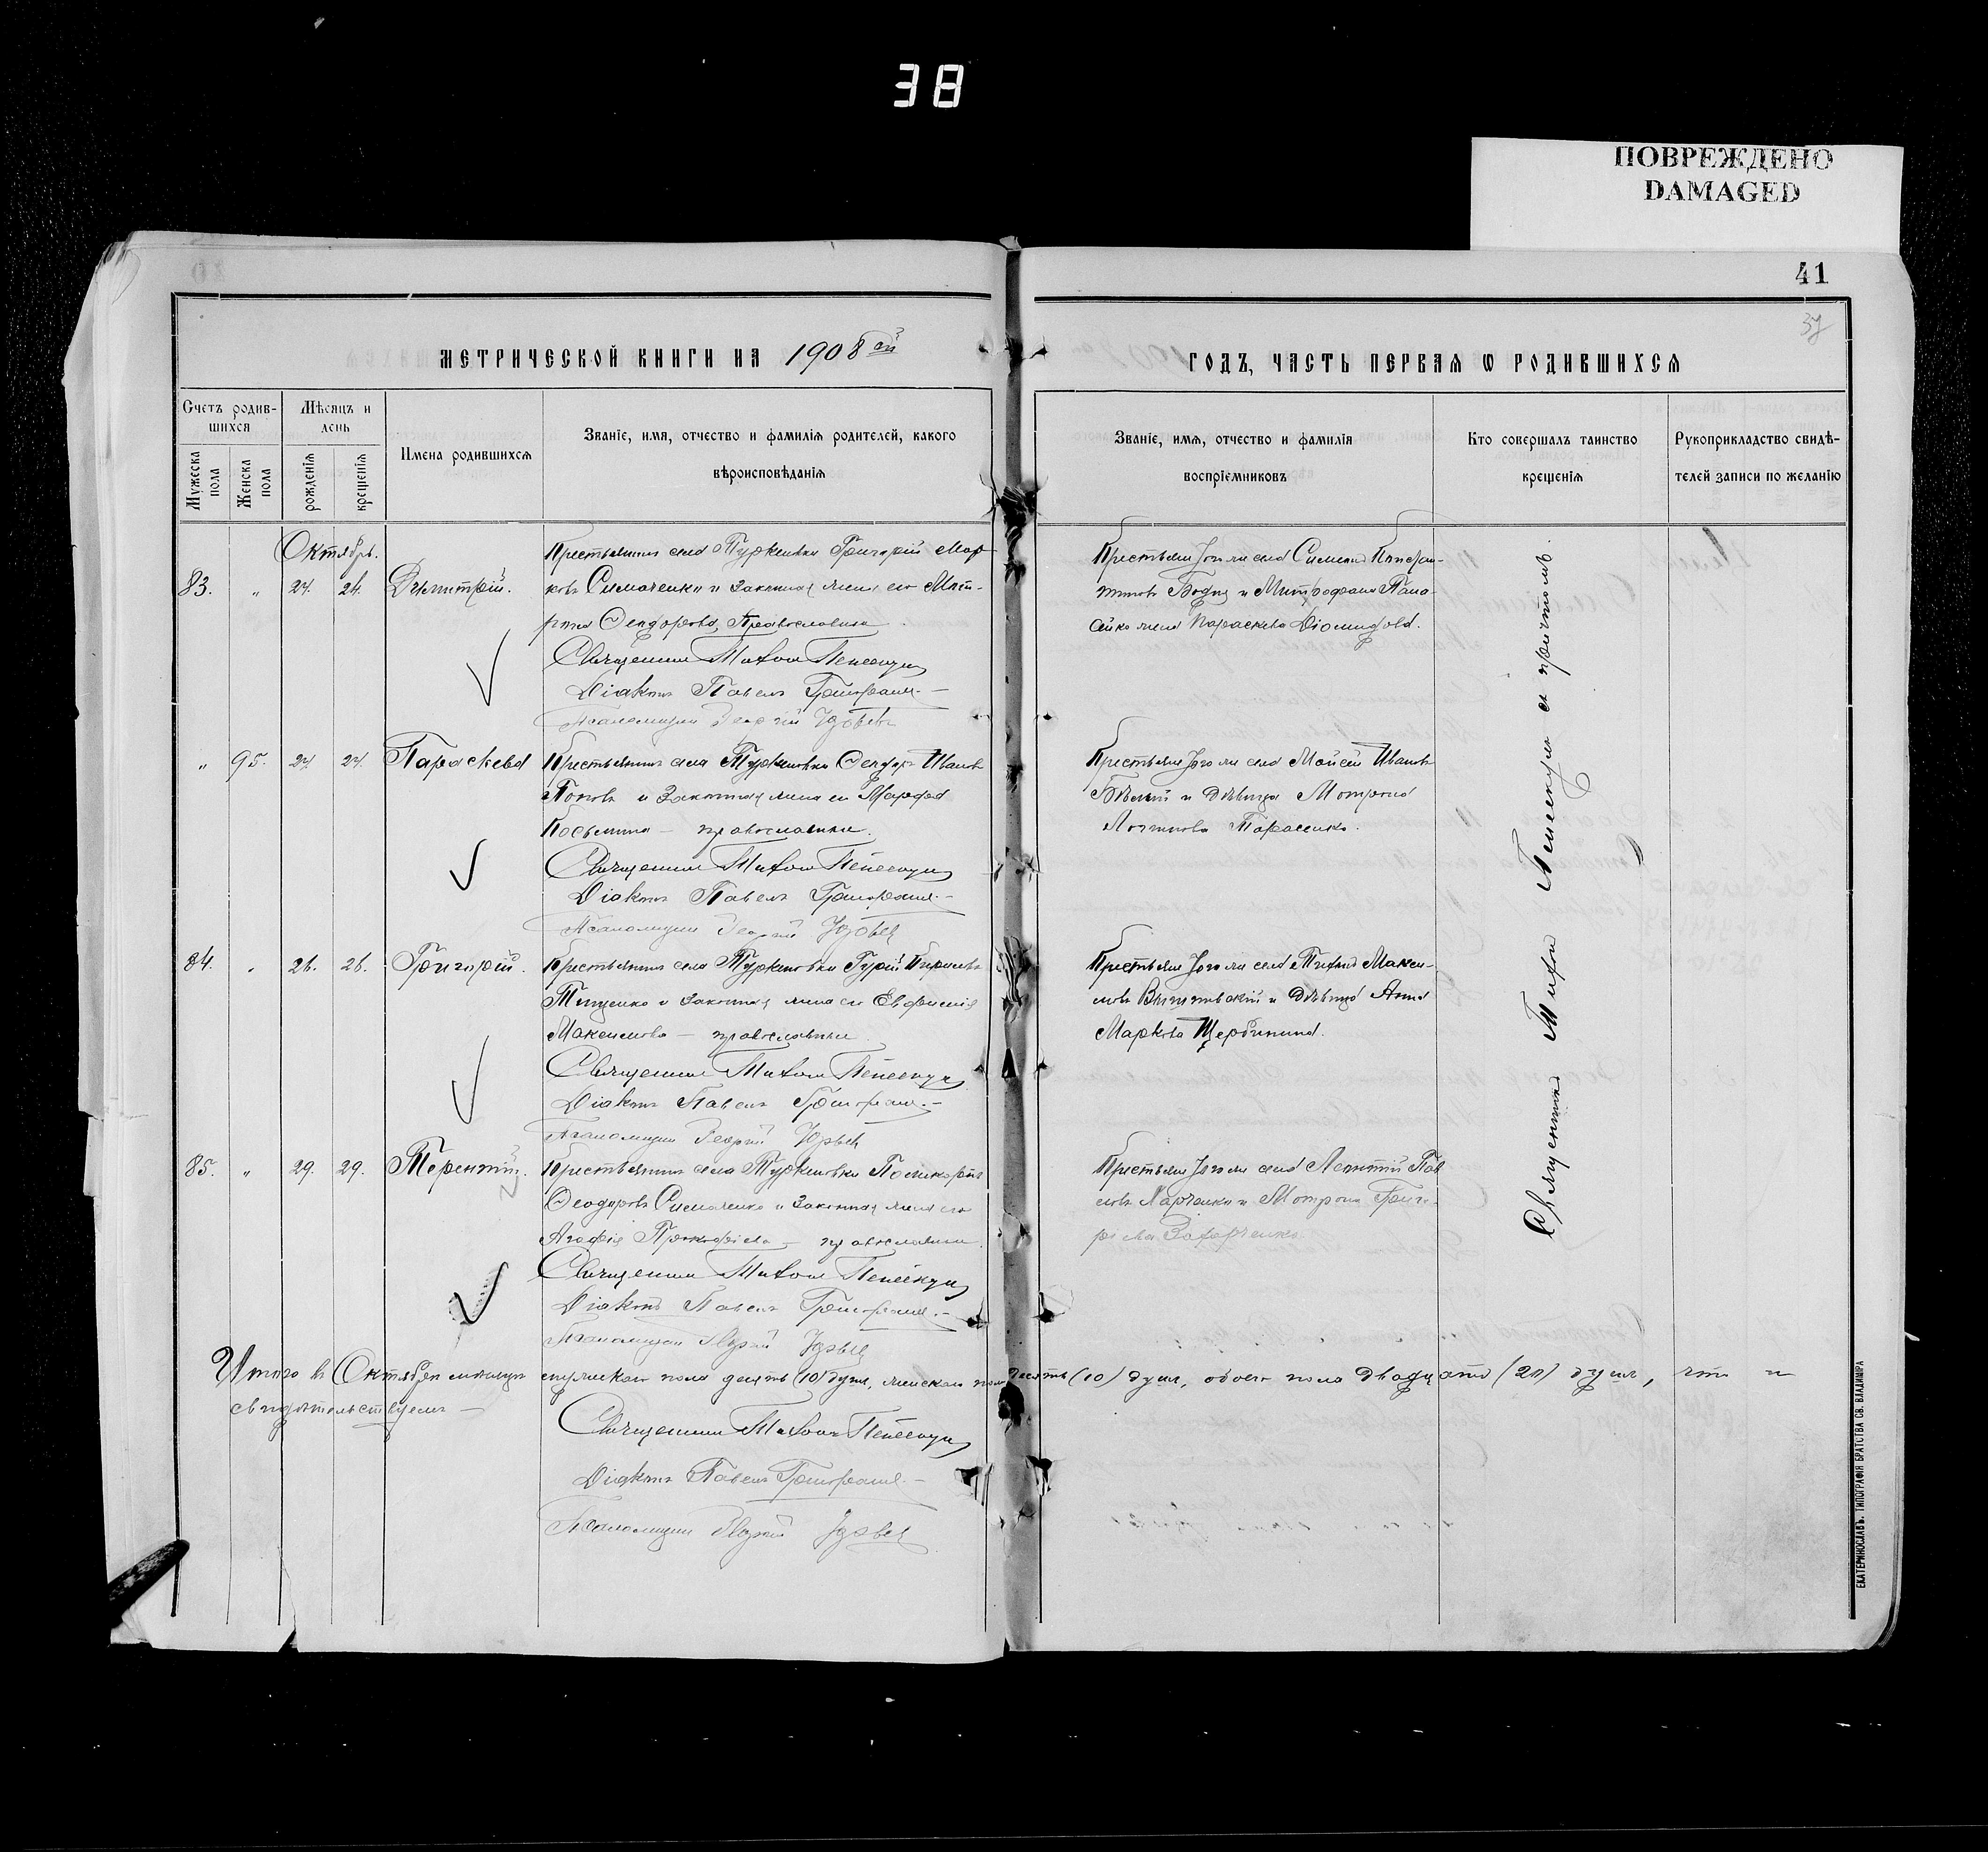 38
ПОВРЕЖДЕНО
DAMAGED
41
37
МЕТРИЧЕСКОЙ КНИГИ НА 1908 ой
ГОДЪ, ЧАСТЬ ПЕРВАЯ Ѡ РОДИВШИХСЯ
Счетъ родив-
шихся
Мужеска
пола
Женска
пола
Мѣсяцъ и
день
рожденія
крещенія
Имена родившихся
Званіе, имя, отчество и фамилія родителей, какого
вѣроисповѣданія
Званіе, имя, отчество и фамилія
воспріемниковъ
Кто совершалъ таинство
крещенія
Рукоприкладство свидѣ-
телей записи по желанію
Октябрь.
83. " 24. 24. Димитрій.
Крестьянинъ села Туркеновки Григорій Мар-
ковъ Симоченко и законная жена его Мат-
рона Феодорова, Православные
Священникъ Тихонъ
Діаконъ Павелъ
Псаломщикъ Георгій
Крестьяне того же села Симеонъ
и Митрофана
жена Параскева Діомидова.
" 95. 27 27. Параскева
Крестьянинъ села Туркеновки Феодоръ Ивановъ
Поповъ и законная жена его Марфа
Косьмина — православные.
Священникъ Тихонъ
Діаконъ Павелъ
Псаломщикъ Георгій
Крестьяне того же села Моисей Ивановъ
Бѣлый и дѣвица Мотрона
Логинова Тарасенко.
84. " 26. 26. Григорій.
Крестьянинъ села Туркеновки Гурій
Тищенко и законная жена его Евфимія
Максимова — православные
Священникъ Тихонъ
Діаконъ Павелъ
Псаломщикъ Георгій
Крестьяне того же села Тихонъ Макси-
мовъ и дѣвица Анна
Маркова Щербинина.
85. " 29. 29. Терентій.
Крестьянинъ села Туркеновки Поликарпъ
Феодоровъ Симоченко и законная жена его
Агафія Прокофіева — православные
Священникъ Тихонъ
Діаконъ Павелъ
Псаломщикъ Георгій
Крестьяне того же села Леонтій Пав
ловъ Харченко и Мотрона Григо-
рьева Захарченко
Священникъ Тихонъ съ причтомъ.
Итого въ Октябрѣ мѣсяцѣ мужескаго пола десять (10) душъ, женскаго пола десять (10) душъ, обоего пола двадцать (20) душъ, что и
свидѣтельствуемъ —
Священникъ Тихонъ
Діаконъ Павелъ
Псаломщикъ Георгій
ЕКАТЕРИНОСЛАВЪ. ТИПОГРАФІЯ БРАТСТВА СВ. ВЛАДИМІРА